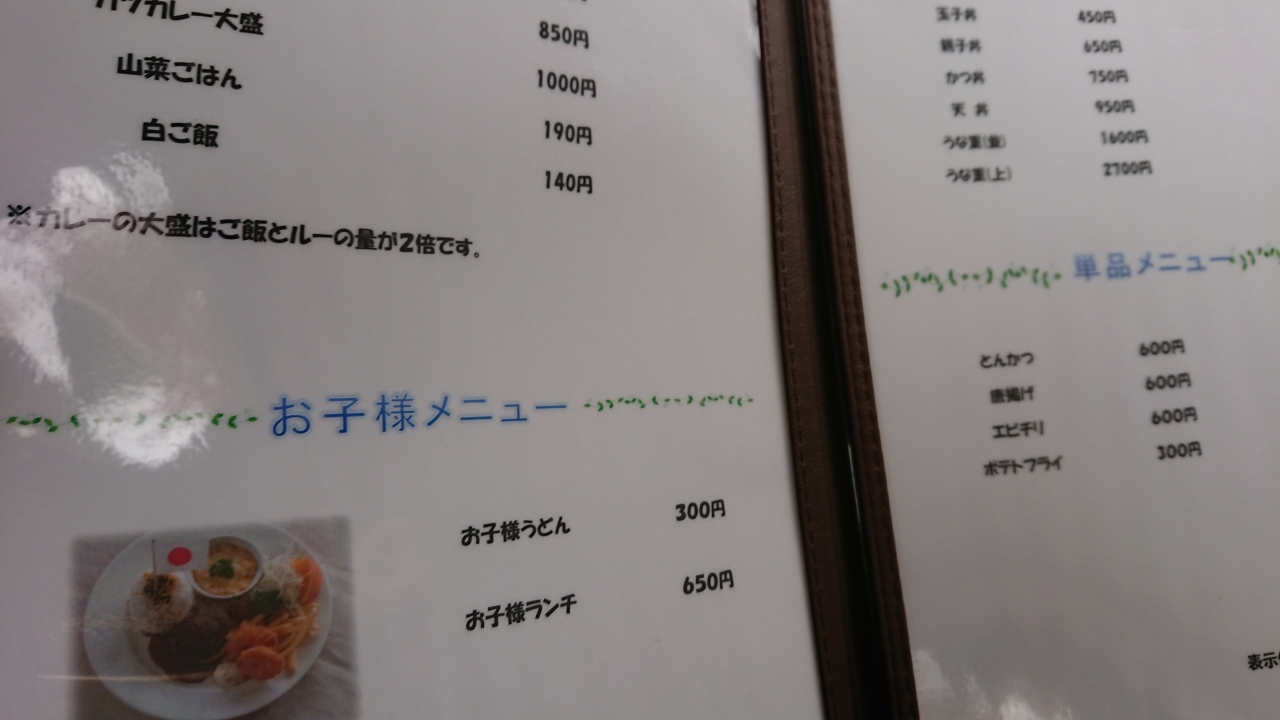 カツカレー大盛
850円
山菜ごはん
1000円
白ご飯
190円
140円
※カレーの大盛はご飯とルーの量が2倍です。
お子様メニュー
お子様うどん 300円
お子様ランチ 650円
玉子丼 450円
親子丼 650円
かつ丼 750円
天 丼 950円
うな重(並) 1600円
うな重(上) 2700円
単品メニュー
とんかつ 600円
唐揚げ 600円
エビチリ 600円
ポテトフライ 300円
表示